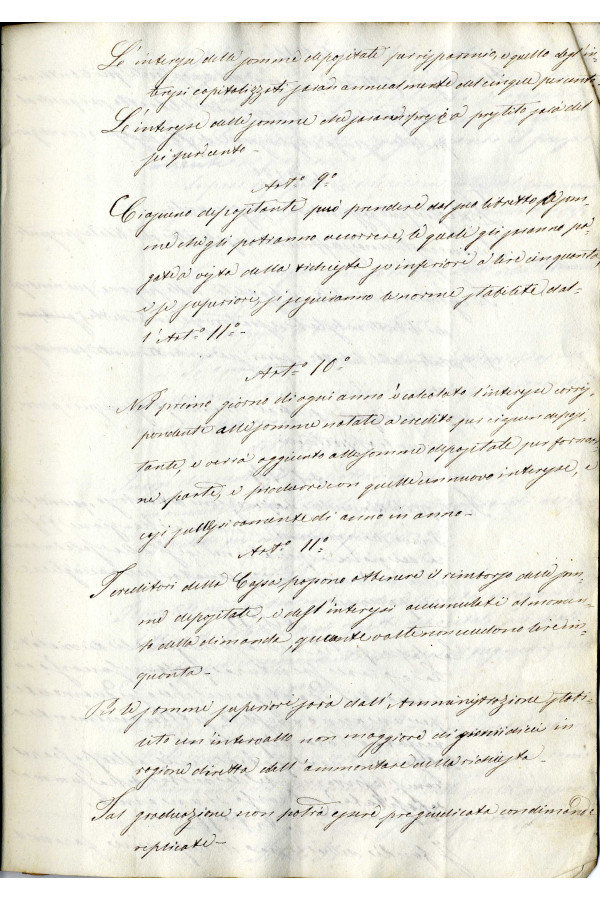 L'interesse delle somme depositate per risparmio, e quello degl'in-
teressi capitalizzati saran annualmente del cinque per cento.
L'interesse delle somme che saranno prese a prestito sarà del
sei per cento -
Art.º 9.º
Ciascuno depositante può prendere dal suo libretto le som-
me che gli potranno occorrere, le quali gli saranno pa-
gate a vista della richiesta se inferiori a lire cinquanta,
e se superiori, si seguiranno le norme stabilite dal-
l'Art.º 11.º -
Art.º 10.º
Nel primo giorno di ogni anno è calcolato l'interesse corris-
pondente alle somme notate a credito per ciascun deposi-
tante, e verrà aggiunto alle somme depositate per formar-
ne parte, e produrre con quelle un nuovo interesse, e
così successivamente di anno in anno -
Art.º 11.º
I creditori della Cassa possono ottenere il rimborso delle som-
me depositate, e degl'interessi accumulati al momen-
to della dimanda, quante volte non eccedono lire cin-
quanta -
Per le somme superiori sarà dall'Amministrazione stabi-
lito un'intervallo non maggiore di giorni dieci in
ragione diretta dell'ammontare della richiesta -
Tal graduazione non potrà essere pregiudicata con dimande
replicate -